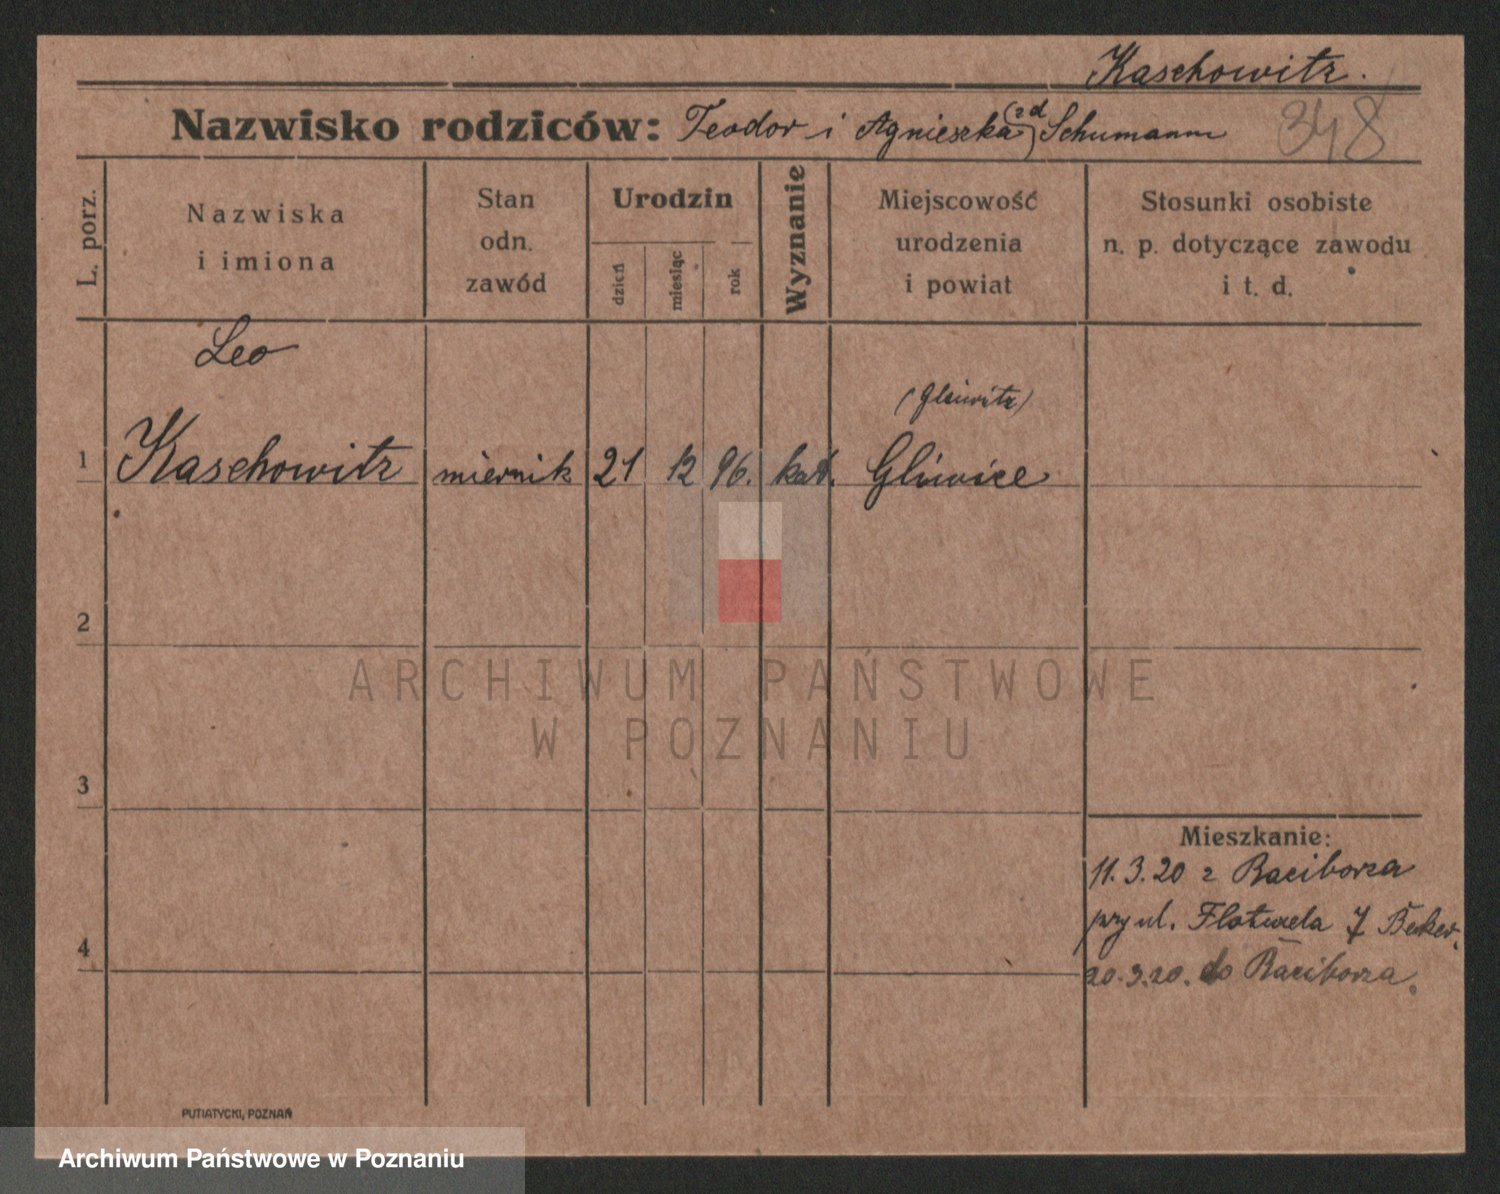 Kaschowitz.
Nazwisko rodziców: Teodor i Agnieszka (zd) Schumann
348
L. porz.
Nazwiska
i imiona
Stan
odn.
zawód
Urodzin
dzień
miesiąc
rok
Wyznanie
Miejscowość
urodzenia
i powiat
Stosunki osobiste
n. p. dotyczące zawodu
i t. d.
Leo
(Gleiwitz)
1 Kaschowitz miernik 21 12 96. kat. Gliwice
2
3
4
Mieszkanie:
11.3.20 z Raciborza
przy ul. Flotwela 7 Beker.
20.3.20. do Raciborza.
PUTIATYCKI, POZNAŃ
ARCHIWUM PAŃSTWOWE
W POZNANIU
Archiwum Państwowe w Poznaniu